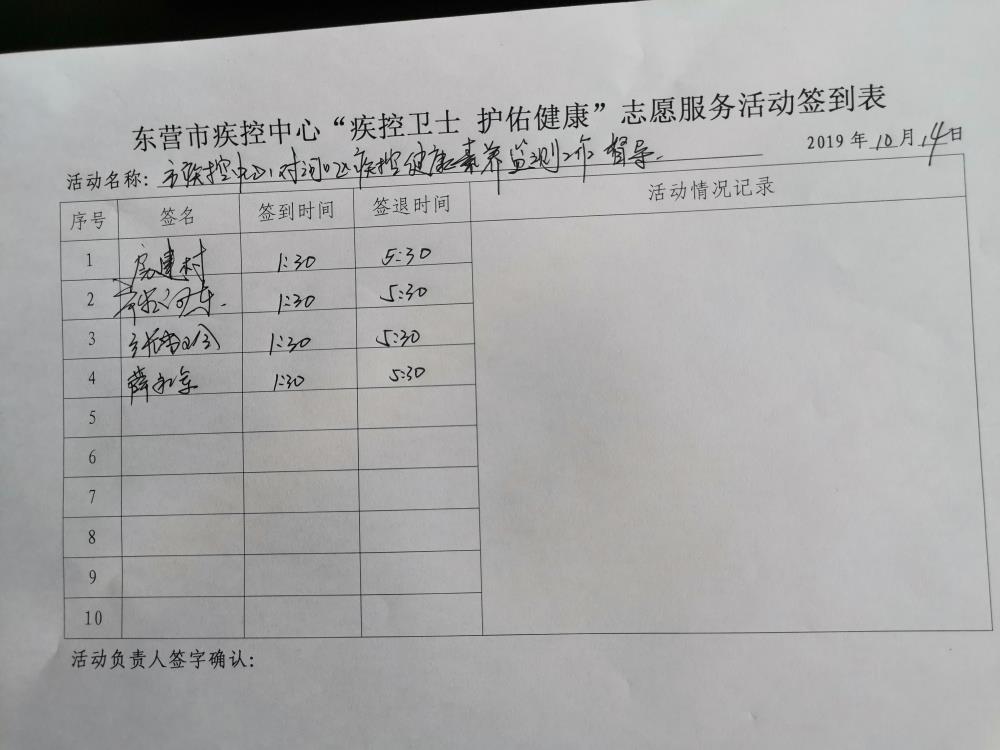 东营市疾控中心“疾控卫士 护佑健康”志愿服务活动签到表
2019年10月14日
活动名称: 疾控中心 疾控健康素养监测工作督导.
序号 签名 签到时间 签退时间 活动情况记录
1 房建村 1:30 5:30
2 1:30 5:30
3 1:30 5:30
4 薛 1:30 5:30
5
6
7
8
9
10
活动负责人签字确认: